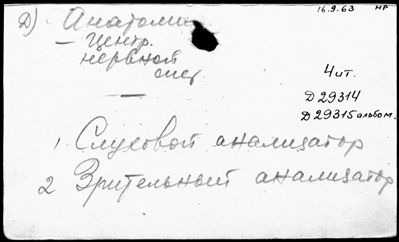 16.9.63 НР
Д) Анатомия
— Центр.
нервной
сист.
4 шт.
Д 29314
Д 29315 альбом.
1. Слуховой анализатор
2 Зрительный анализатор